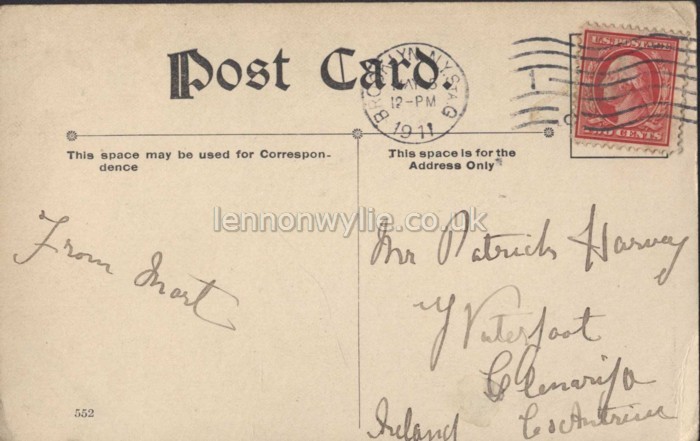 Post Card.
BROOKLYN, N.Y. STA. G
12-PM
1911
U.S. POSTAGE
TWO CENTS
This space may be used for Correspon-
dence
This space is for the
Address Only
lennonwylie.co.uk
From Mart
Mr Patrick Harvey
Waterfoot
Glenariffe
Co Antrim
Ireland
552